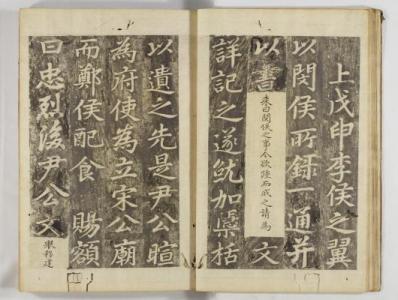 上戊申李侯之翼
以閔侯所録一通并
以書來曰閔侯之事今欲石之請為文
詳記之遂就加檃括
以遺之先是尹公暄
為府使為立宋公廟
而鄭侯配食 賜額
曰忠烈後尹公文移建